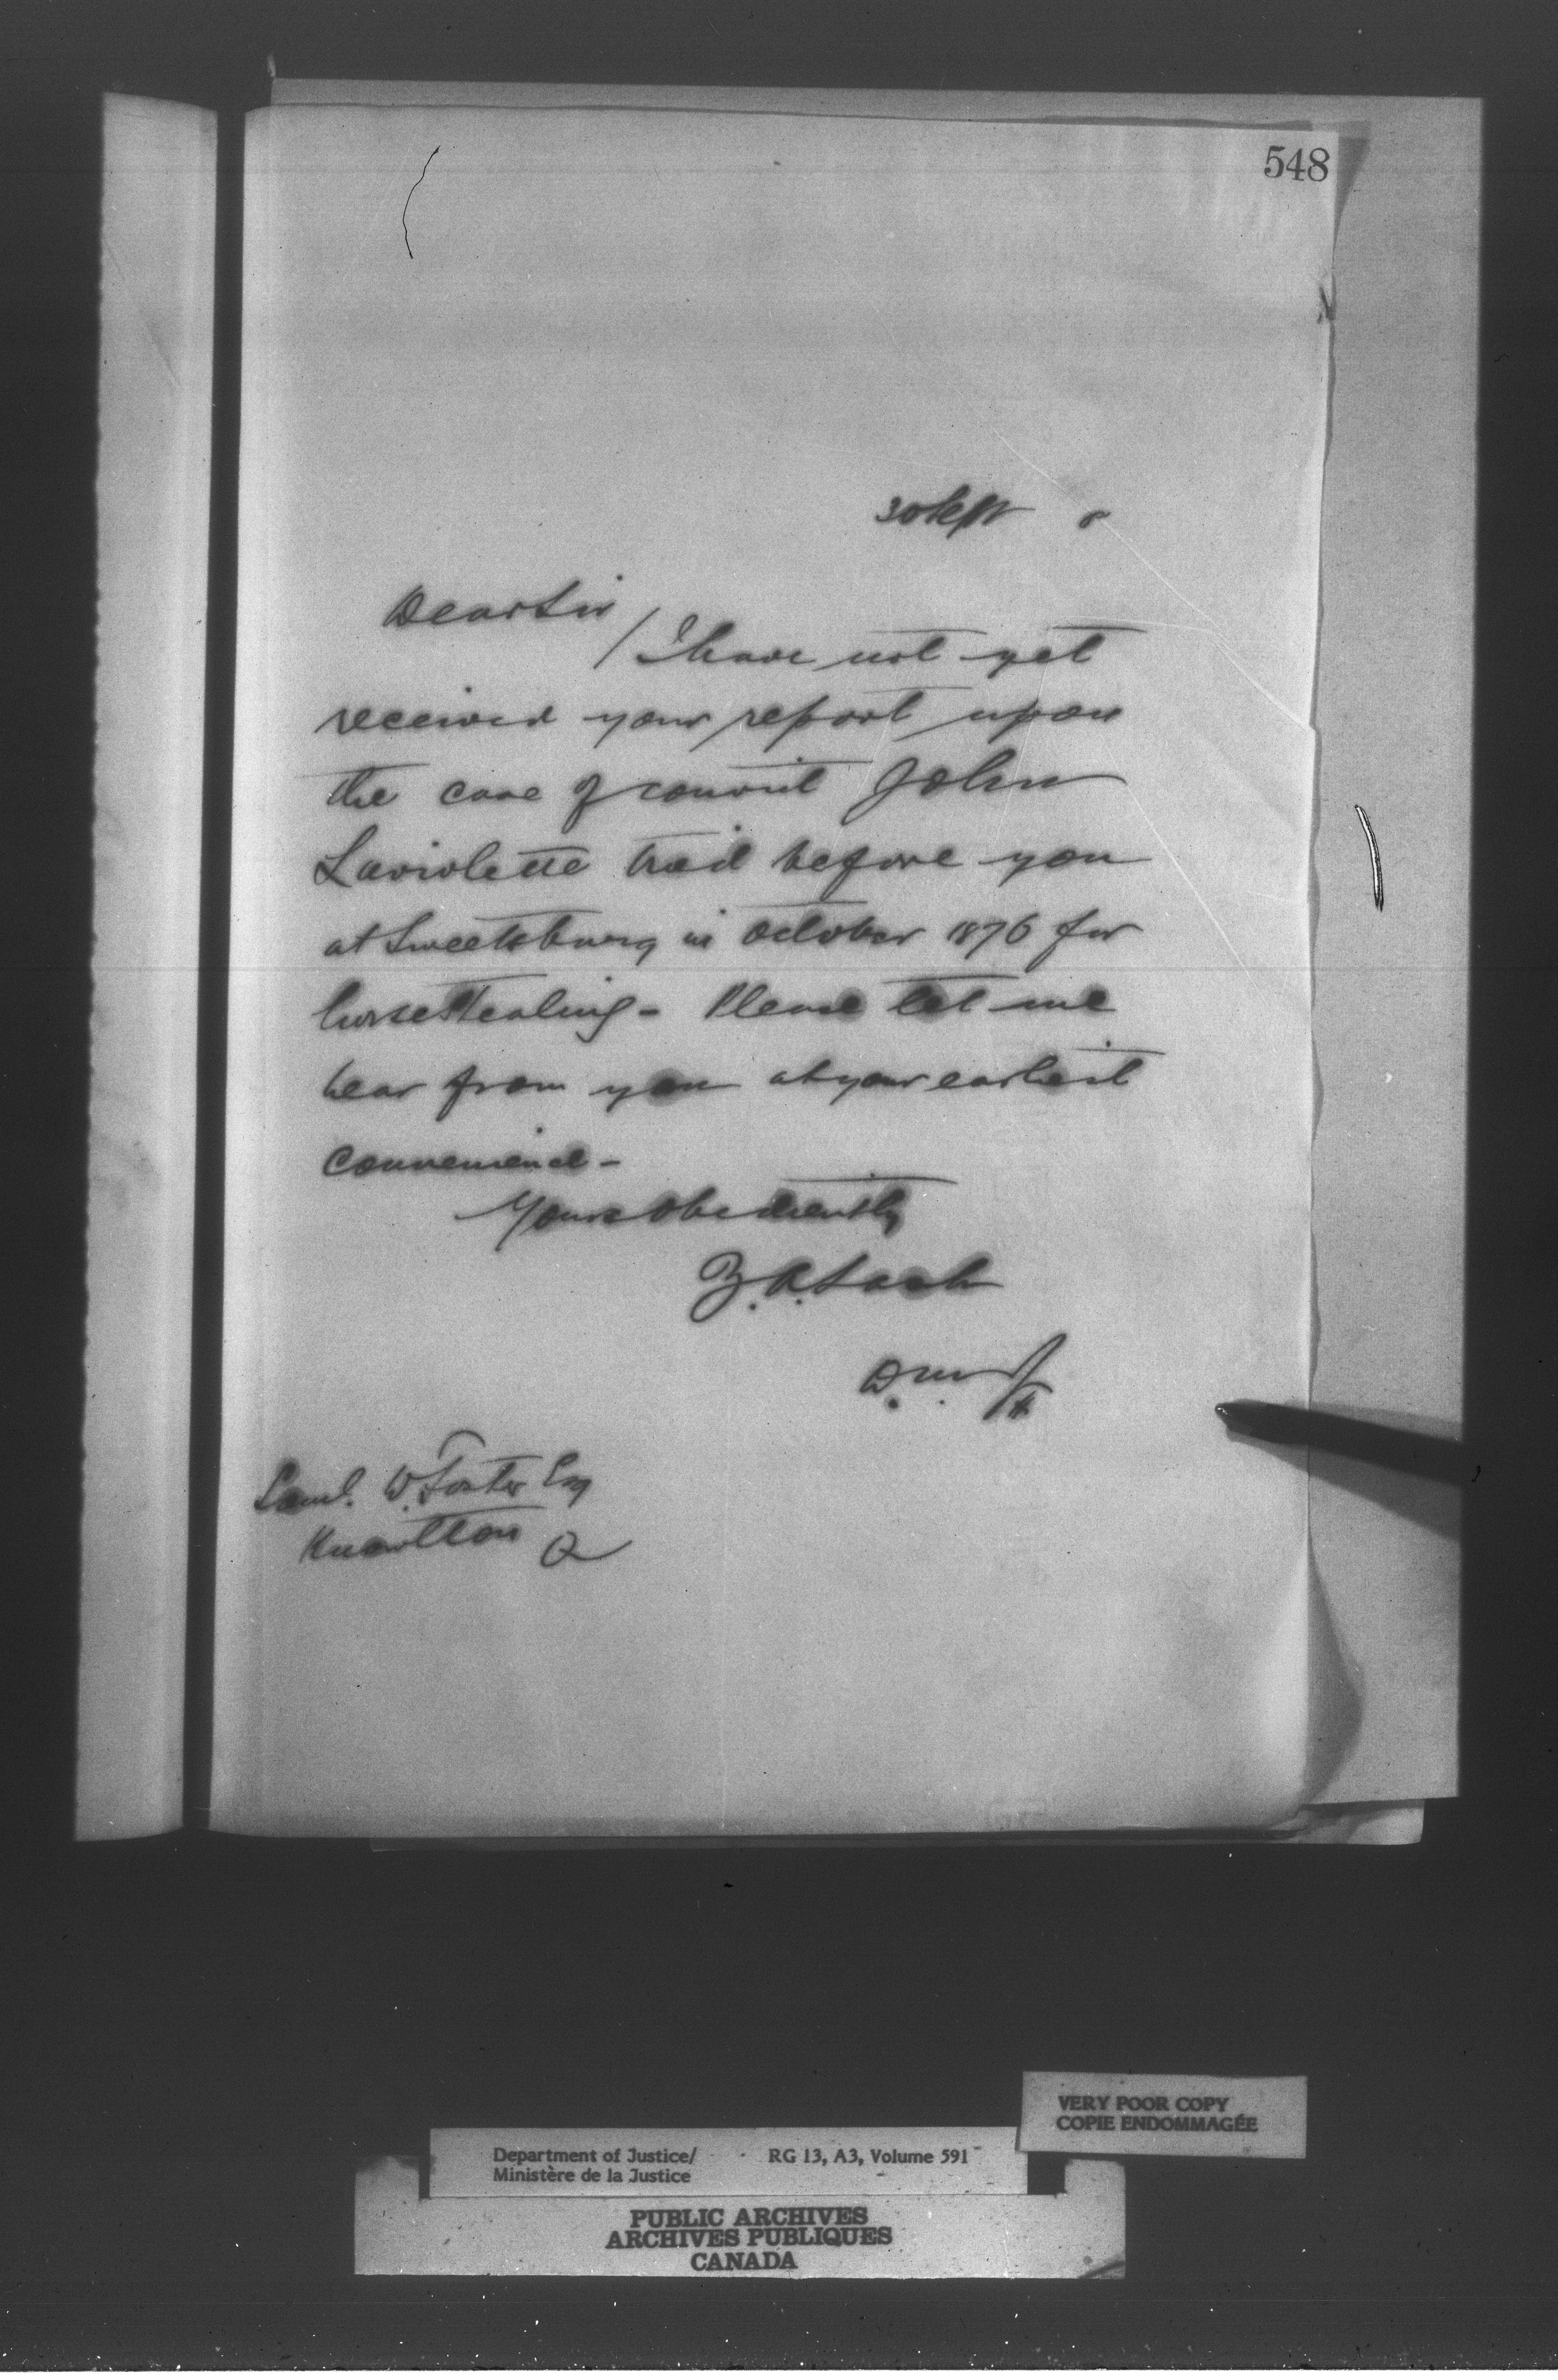 548
30 Sept 8
Dear Sir
I have not yet
received your report upon
the case of convict John
Laviolette tried before you
at Sweetsburg in October 1876 for
horse stealing - Please let me
hear from you at your earliest
convenience -
Yours obediently
Z. A. Lash
D. M. J.
Saml. W. Foster Esq
Knowlton Q
VERY POOR COPY
COPIE ENDOMMAGÉE
Department of Justice/ RG 13, A3, Volume 591
Ministère de la Justice
PUBLIC ARCHIVES
ARCHIVES PUBLIQUES
CANADA